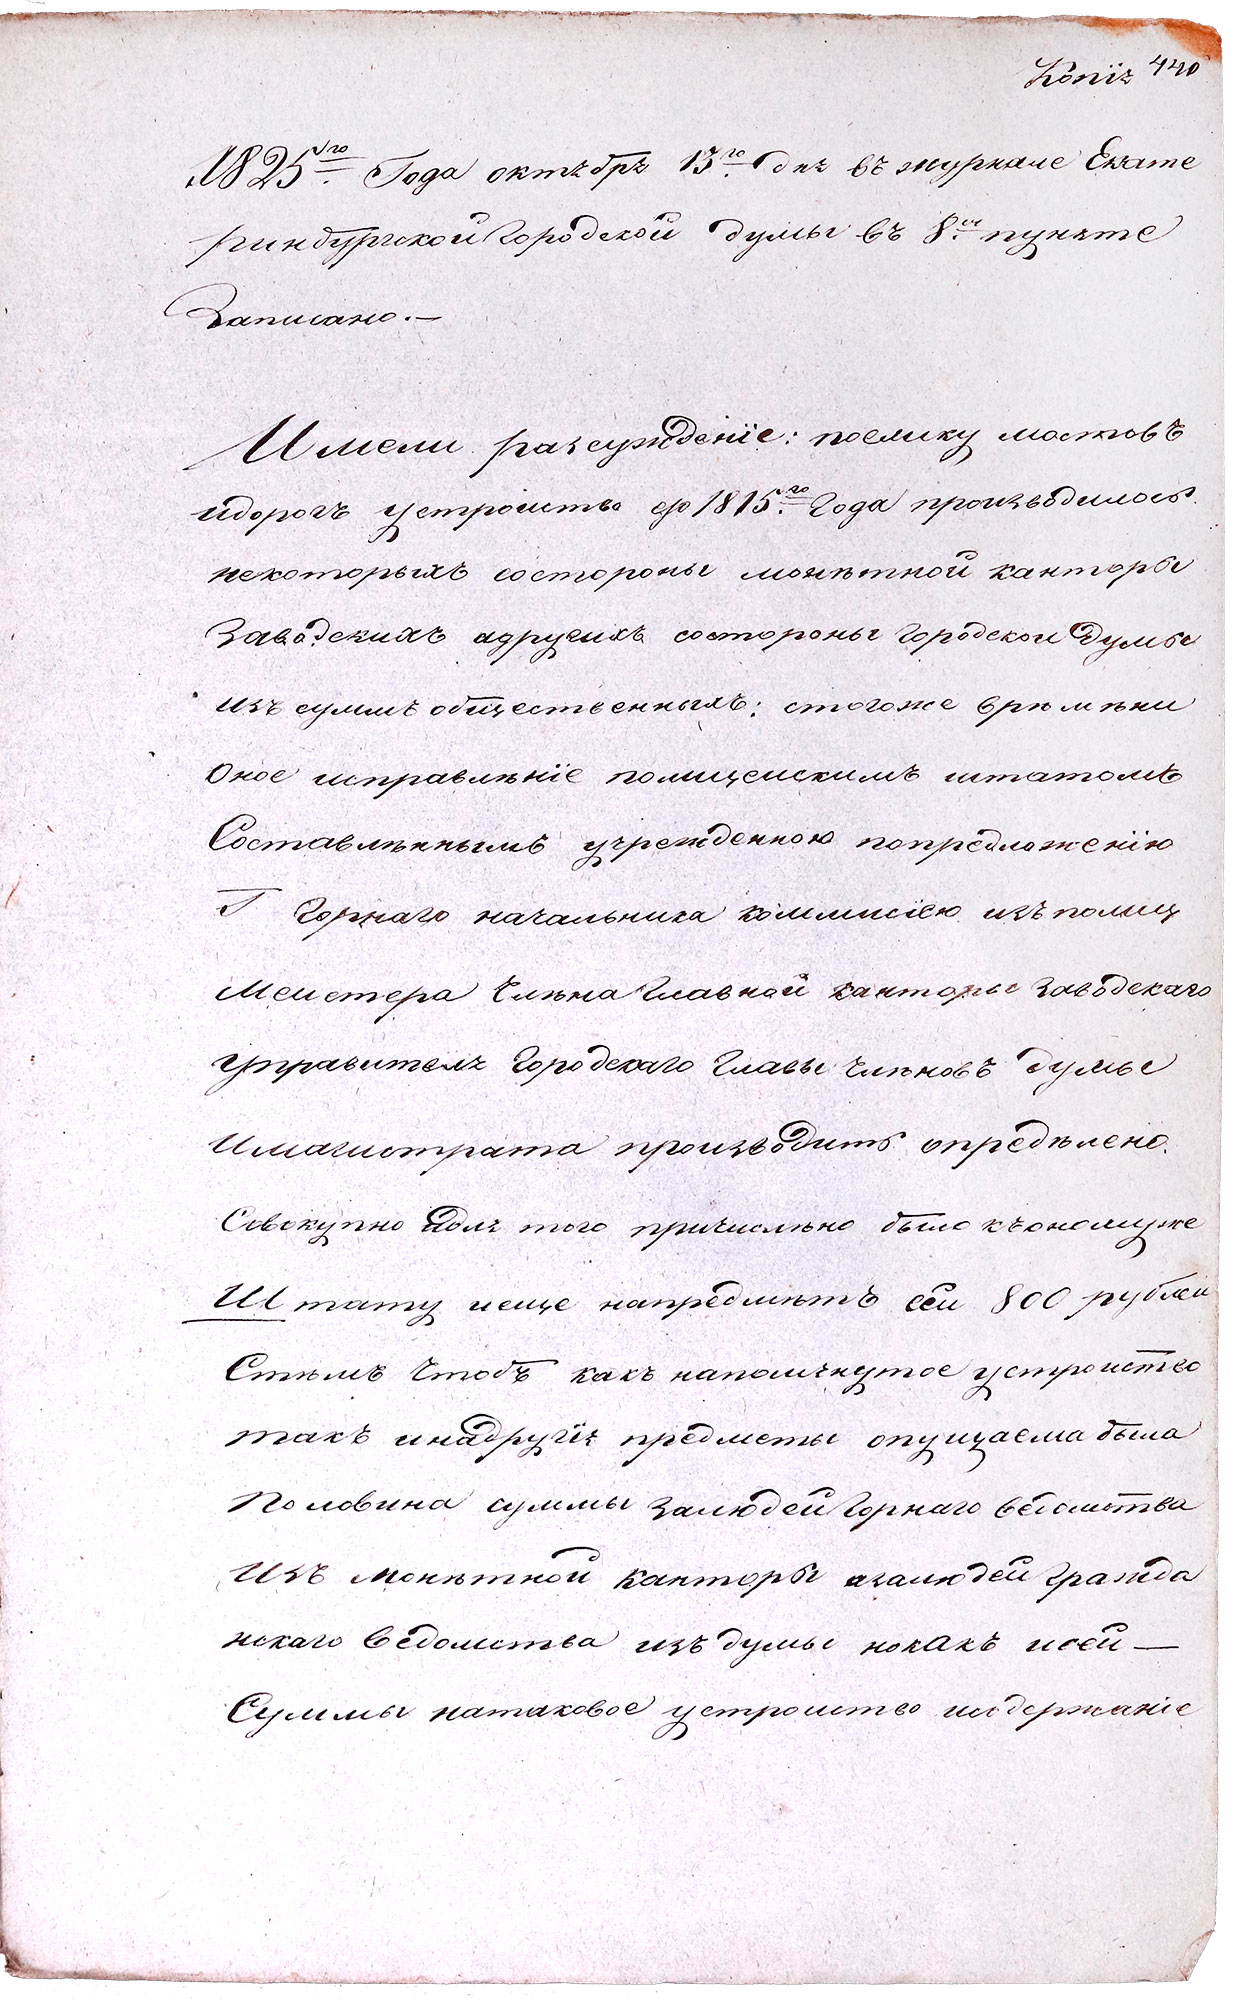 Копія 440
1825го Года октября 13го дня въ журнале Екате
ринбургской Городской думы въ 8м пункте
Записано.—
Имели разсужденіе: поелику мостовъ
идорогъ устроиство до 1815го Года производилось
некоторыхъ состороны монѣтной канторы
Заводскихъ адругихъ состороны Городской Думы
изъ суммъ общественныхъ; стогоже врѣмѣни
Оное исправлѣніе полицеискимъ штатомъ
Составлѣннымъ учрежденною попредложенію
Г Горнаго начальника коммисіею изъ полиц
Меистера Члѣна Главной канторы Заводскаго
Управителя Городскаго Главы Члѣновъ Думы
Имагистрата производить опредѣлено.
Совокупно идля того причислѣно было къономуже
Штату иеще напредмѣтъ сеи 800 рублеи
Стѣмъ Чтобъ какъ напомянутое устроиство
такъ инадругія предметы опущаема была
Половина суммы залюдей Горнаго вѣдомства
Изъ монѣтной Канторы азалюдей Гражда
нскаго Ведомства изъ думы нокакъ исей —
Суммы натаковое устроиство исодержаніе